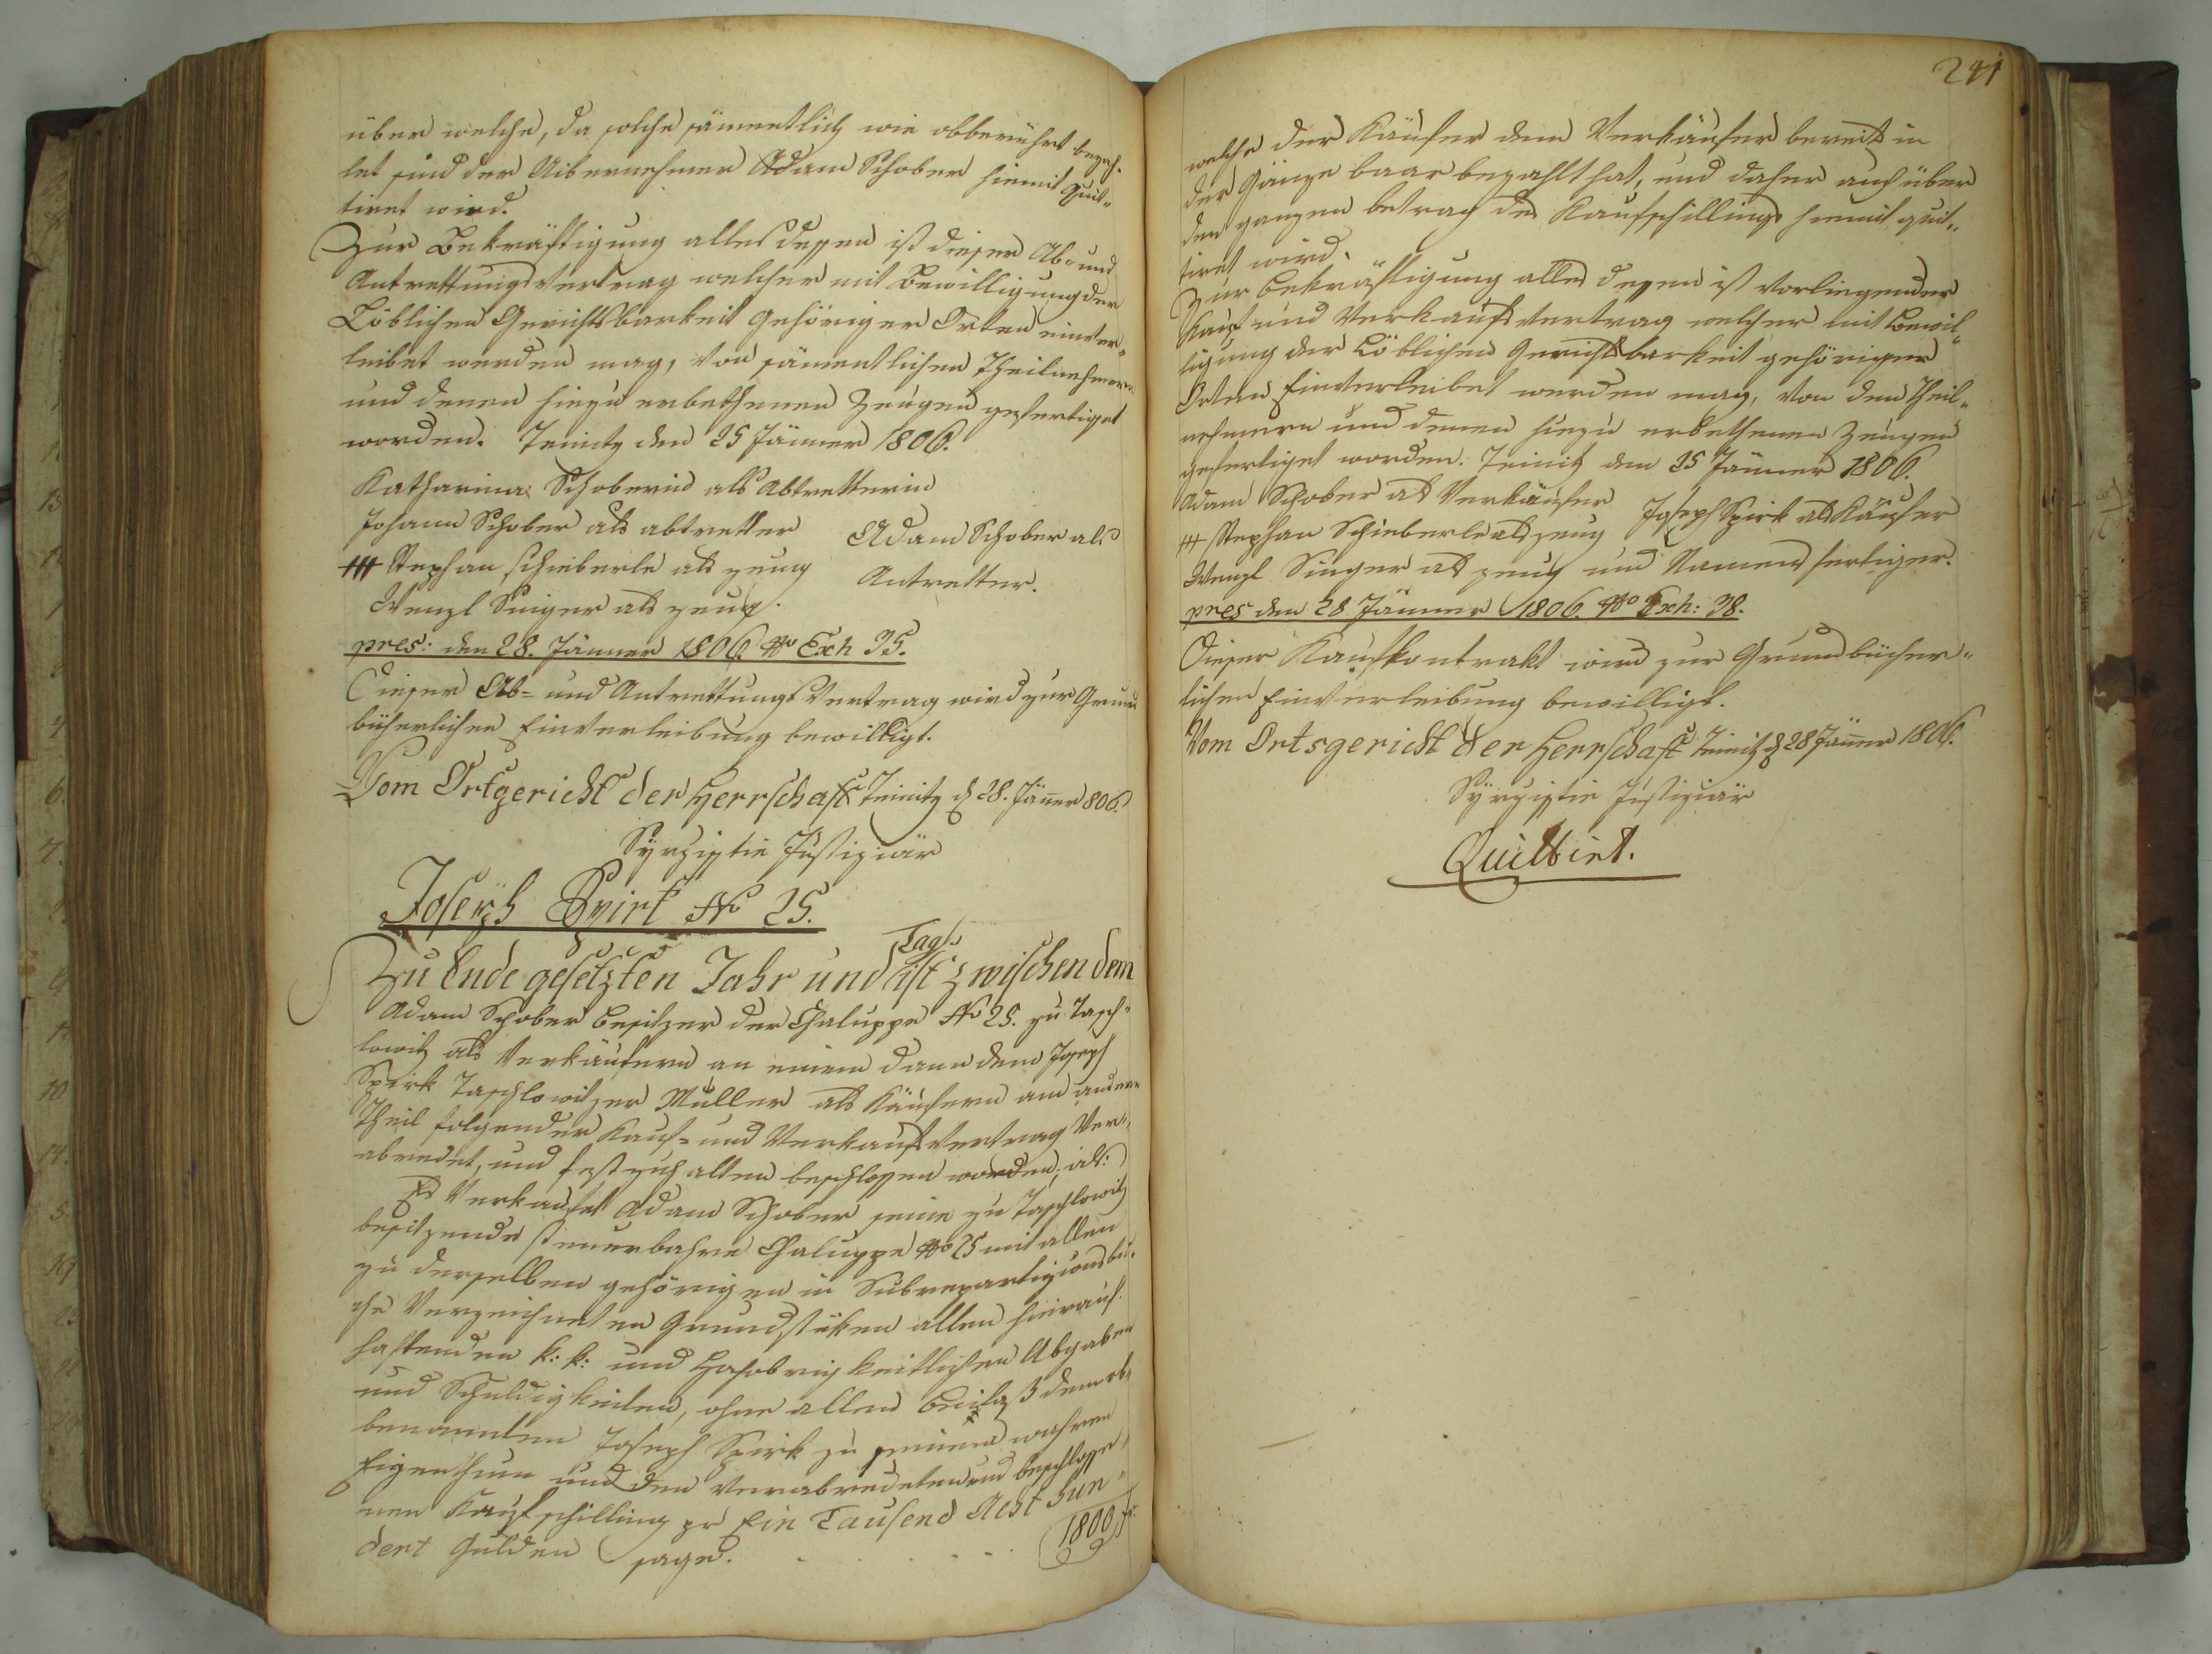 über welche, da solche sämmentlich wie obberührt bezah-
let sind der Uibernehmer Adam Schober hiemit quit-
tiret wird.
Zur Bekräftigung alles dessen ist dieser Ab- und
Antrettungs Vertrag welcher mit Bewilligung der
Löblichen Gerichtsbarkeit gehöriger Orten einver-
leibet werden mag, von sämentlichen Theilnehmern
und denen hiezu erbethenen Zeugen gefertiget
worden. Teinitz den 25 Jänner 1806.
Katharina Schoberin als Abtretterin
Johann Schober als abtretter Adam Schober als
+++ Stephan Schieberle als zeug Antretter.
Wenzl Singer als zeug.
pres: den 28. Jänner 1806. No Exh 35.
Dieser Ab- und Antrettungs Vertrag wird zur Grund
bücherlichen Einverleibung bewilligt.
Vom Ortgericht der Herrschaft Teinitz d 28. Jäner 806.
Justiziär
Joseph Spirk No 25.
Tag
Zu Ende gesetzten Jahr und ist zwischen dem
Adam Schober Besitzer der Chaluppe No 25. zu Tasch-
lowitz als Verkäufern an einem dann dem Joseph
Spirk Taschlowitzer Müller als Käufern am andern
Theil folgender Kauf- und Verkaufsvertrag ver-
abredet, und festzuhalten beschlossen worden; als:
Es Verkaufet Adam Schober seine zu Taschlowitz
besitzende steuerbahre Chaluppe No 25 mit allen
zu derselben gehörigen in Subrepartizionsbu-
che Verzeichneten Grundstüken allen hierauf
haftenden k: k: und Hochobrigkeitlichen Abgaben
und Schuldigkeiten, ohne allen Beilaß dem ob-
benannten Joseph Spirk zu seinem wahren
Eigenthum um den verabredeten und beschlosse-
nen Kaufschilling pr Ein Tausend Acht Hun-
dert Gulden sage. . . . . 1800 f:
241
welche der Käufer dem Verkäufer bereits in
der Gänze baar bezahlt hat, und daher auch über
den ganzen betrag des Kaufschillings hiemit quit-
tiret wird.
Zur bekräftigung alles dessen ist vorliegender
Kauf und Verkaufsvertrag welcher mit Bewil-
ligung der Löblichen Gerichtsbarkeit gehöriger
Orten Einverleibet werden mag, von den Theil-
nehmern und denen hiezu erbethenen Zeugen
gefertiget worden. Teinitz den 25 Jänner 1806.
Adam Schober als Verkäufer Joseph Spirk als Käufer
+++ Stephan Schieberle als zeug
Wenzl Singer als zeug und Namens fertiger.
pres den 28 Jänner 1806. No Exh: 38.
Dieser Kaufkontrakt wird zur Grundbücher-
lichen Einverleibung bewilligt.
Vom Ortsgericht der Herrschaft Teinitz d 28 Jäner 1806.
Justiziär
Quittirt.